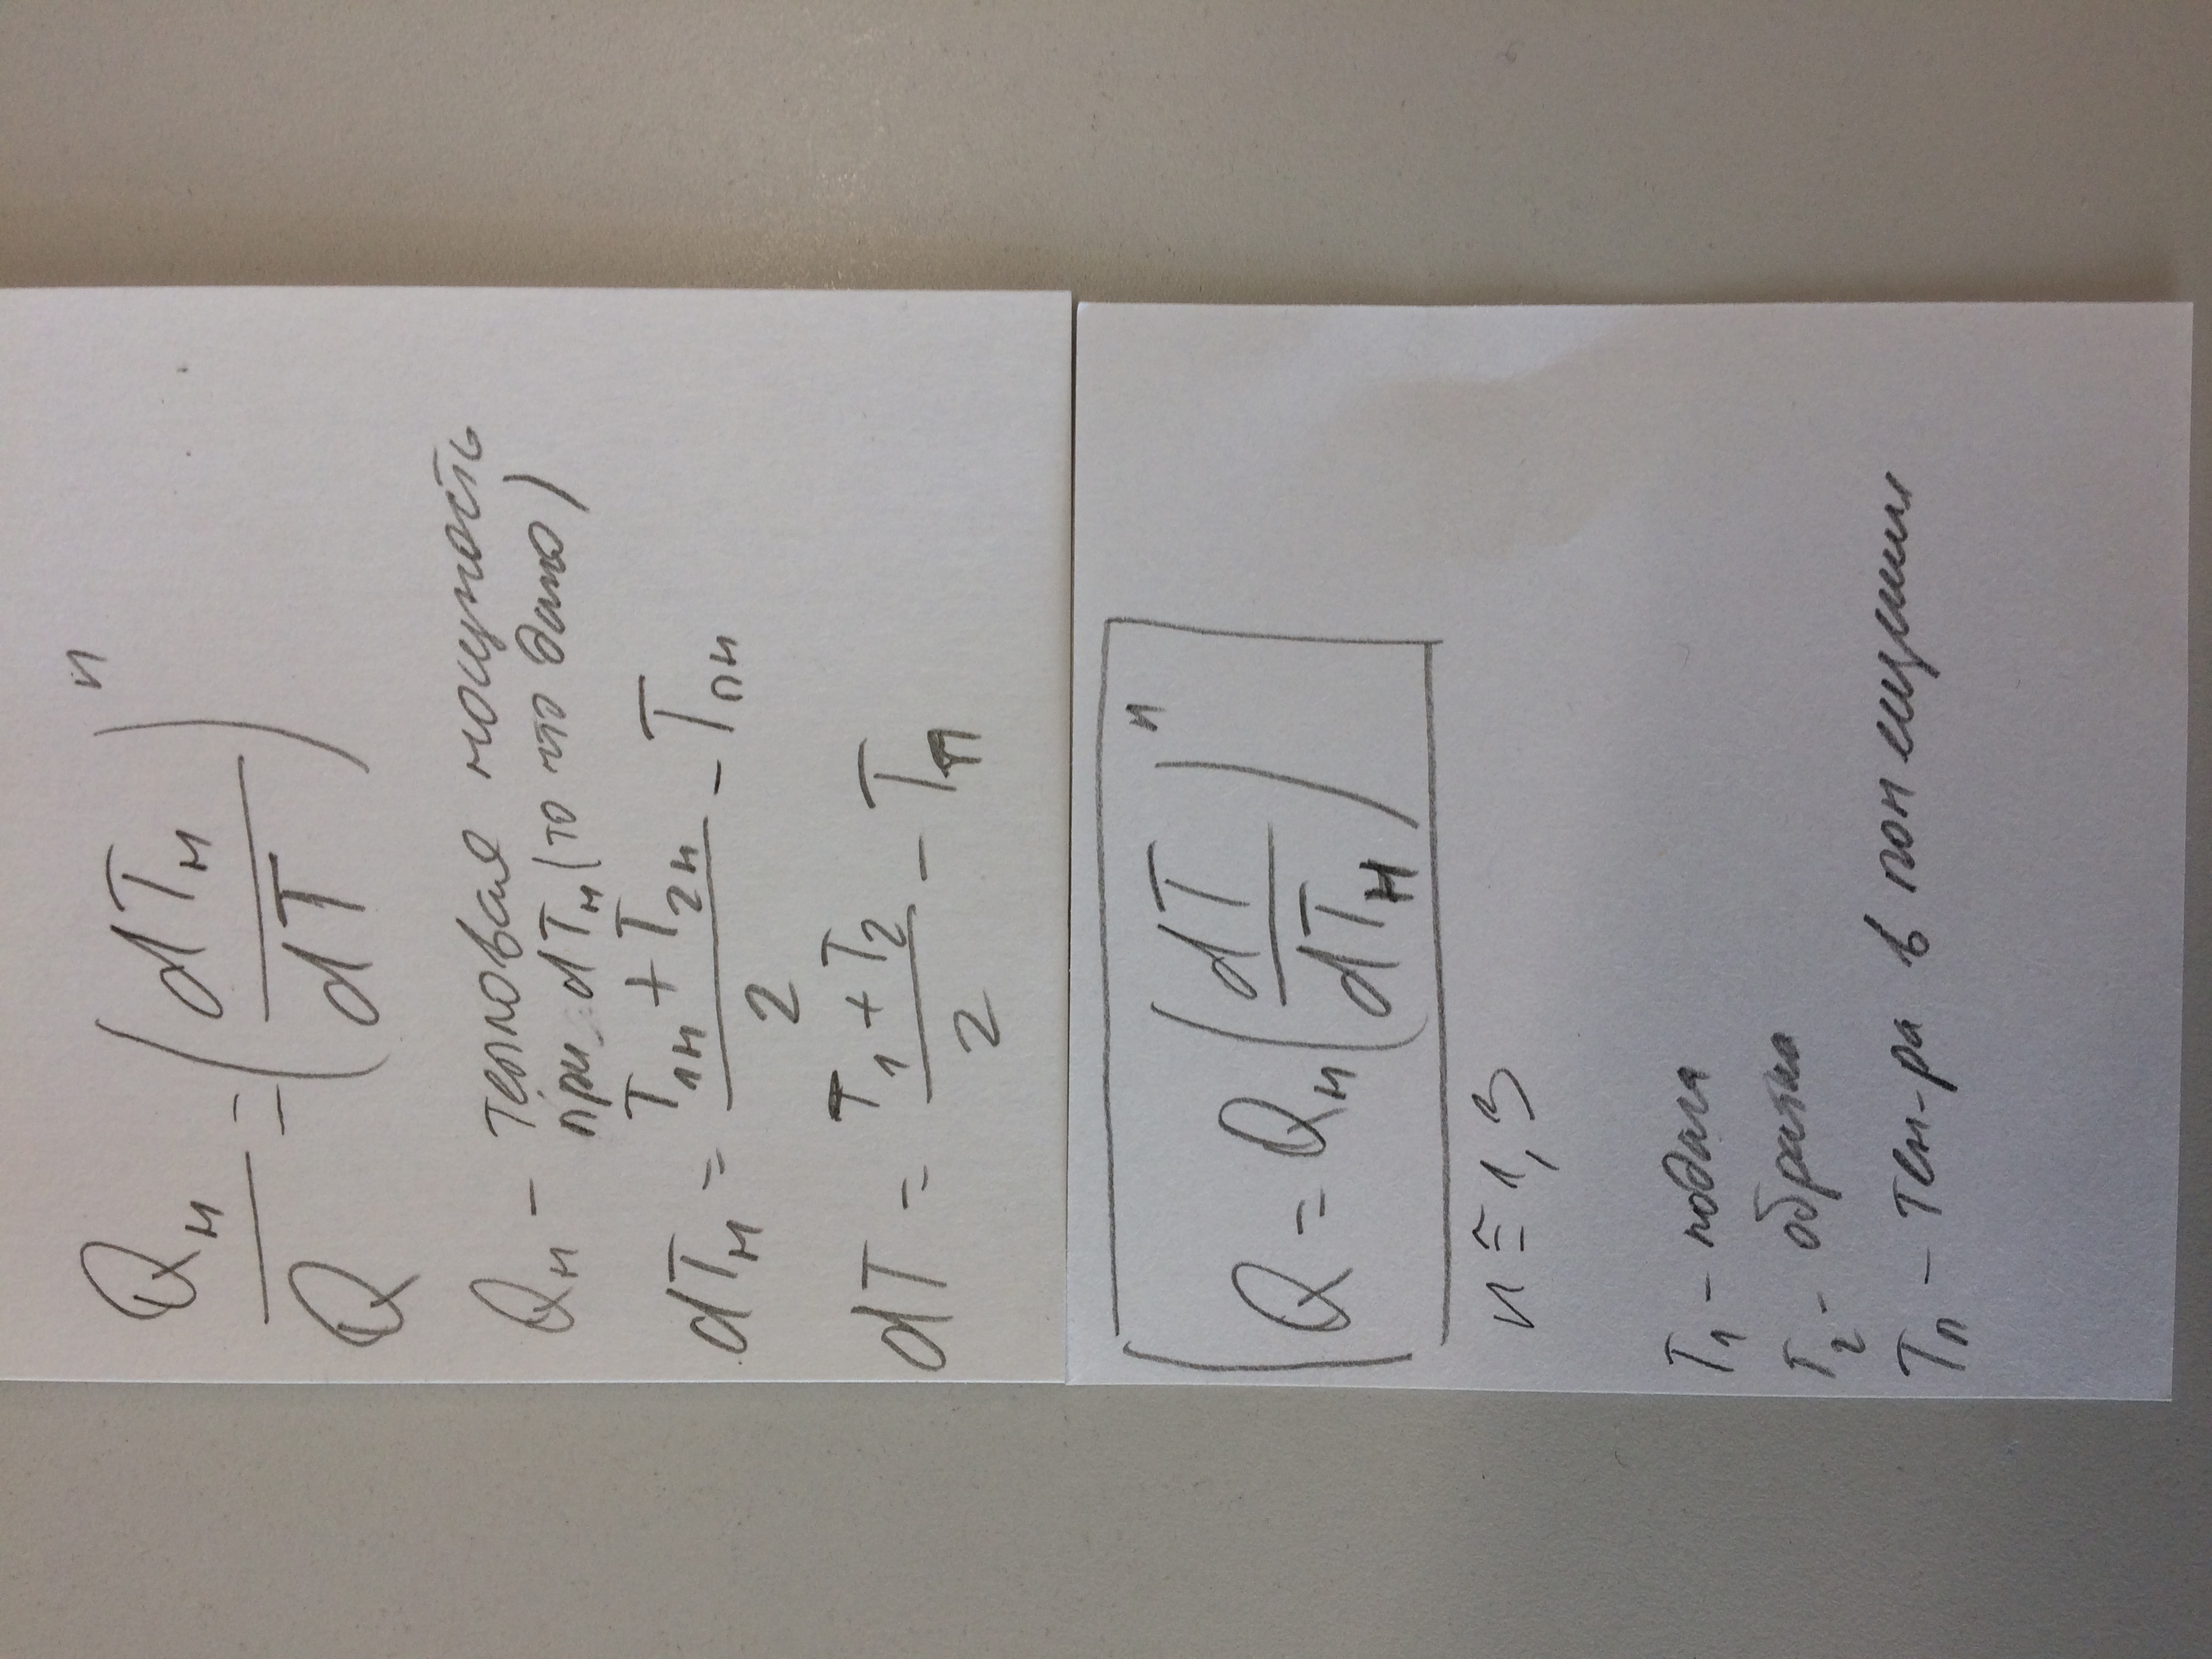 Qн/Q = (dTн/dT)ⁿ
Qн – тепловая мощность
при dTн (то что дано)
dTн = (T₁н + T₂н)/2 – Tпн
dT = (T₁ + T₂)/2 – Tп
Q = Qн (dT/dTн)ⁿ
n ≅ 1,3
T₁ – подача
T₂ – обратка
Tп – тем-ра в помещении